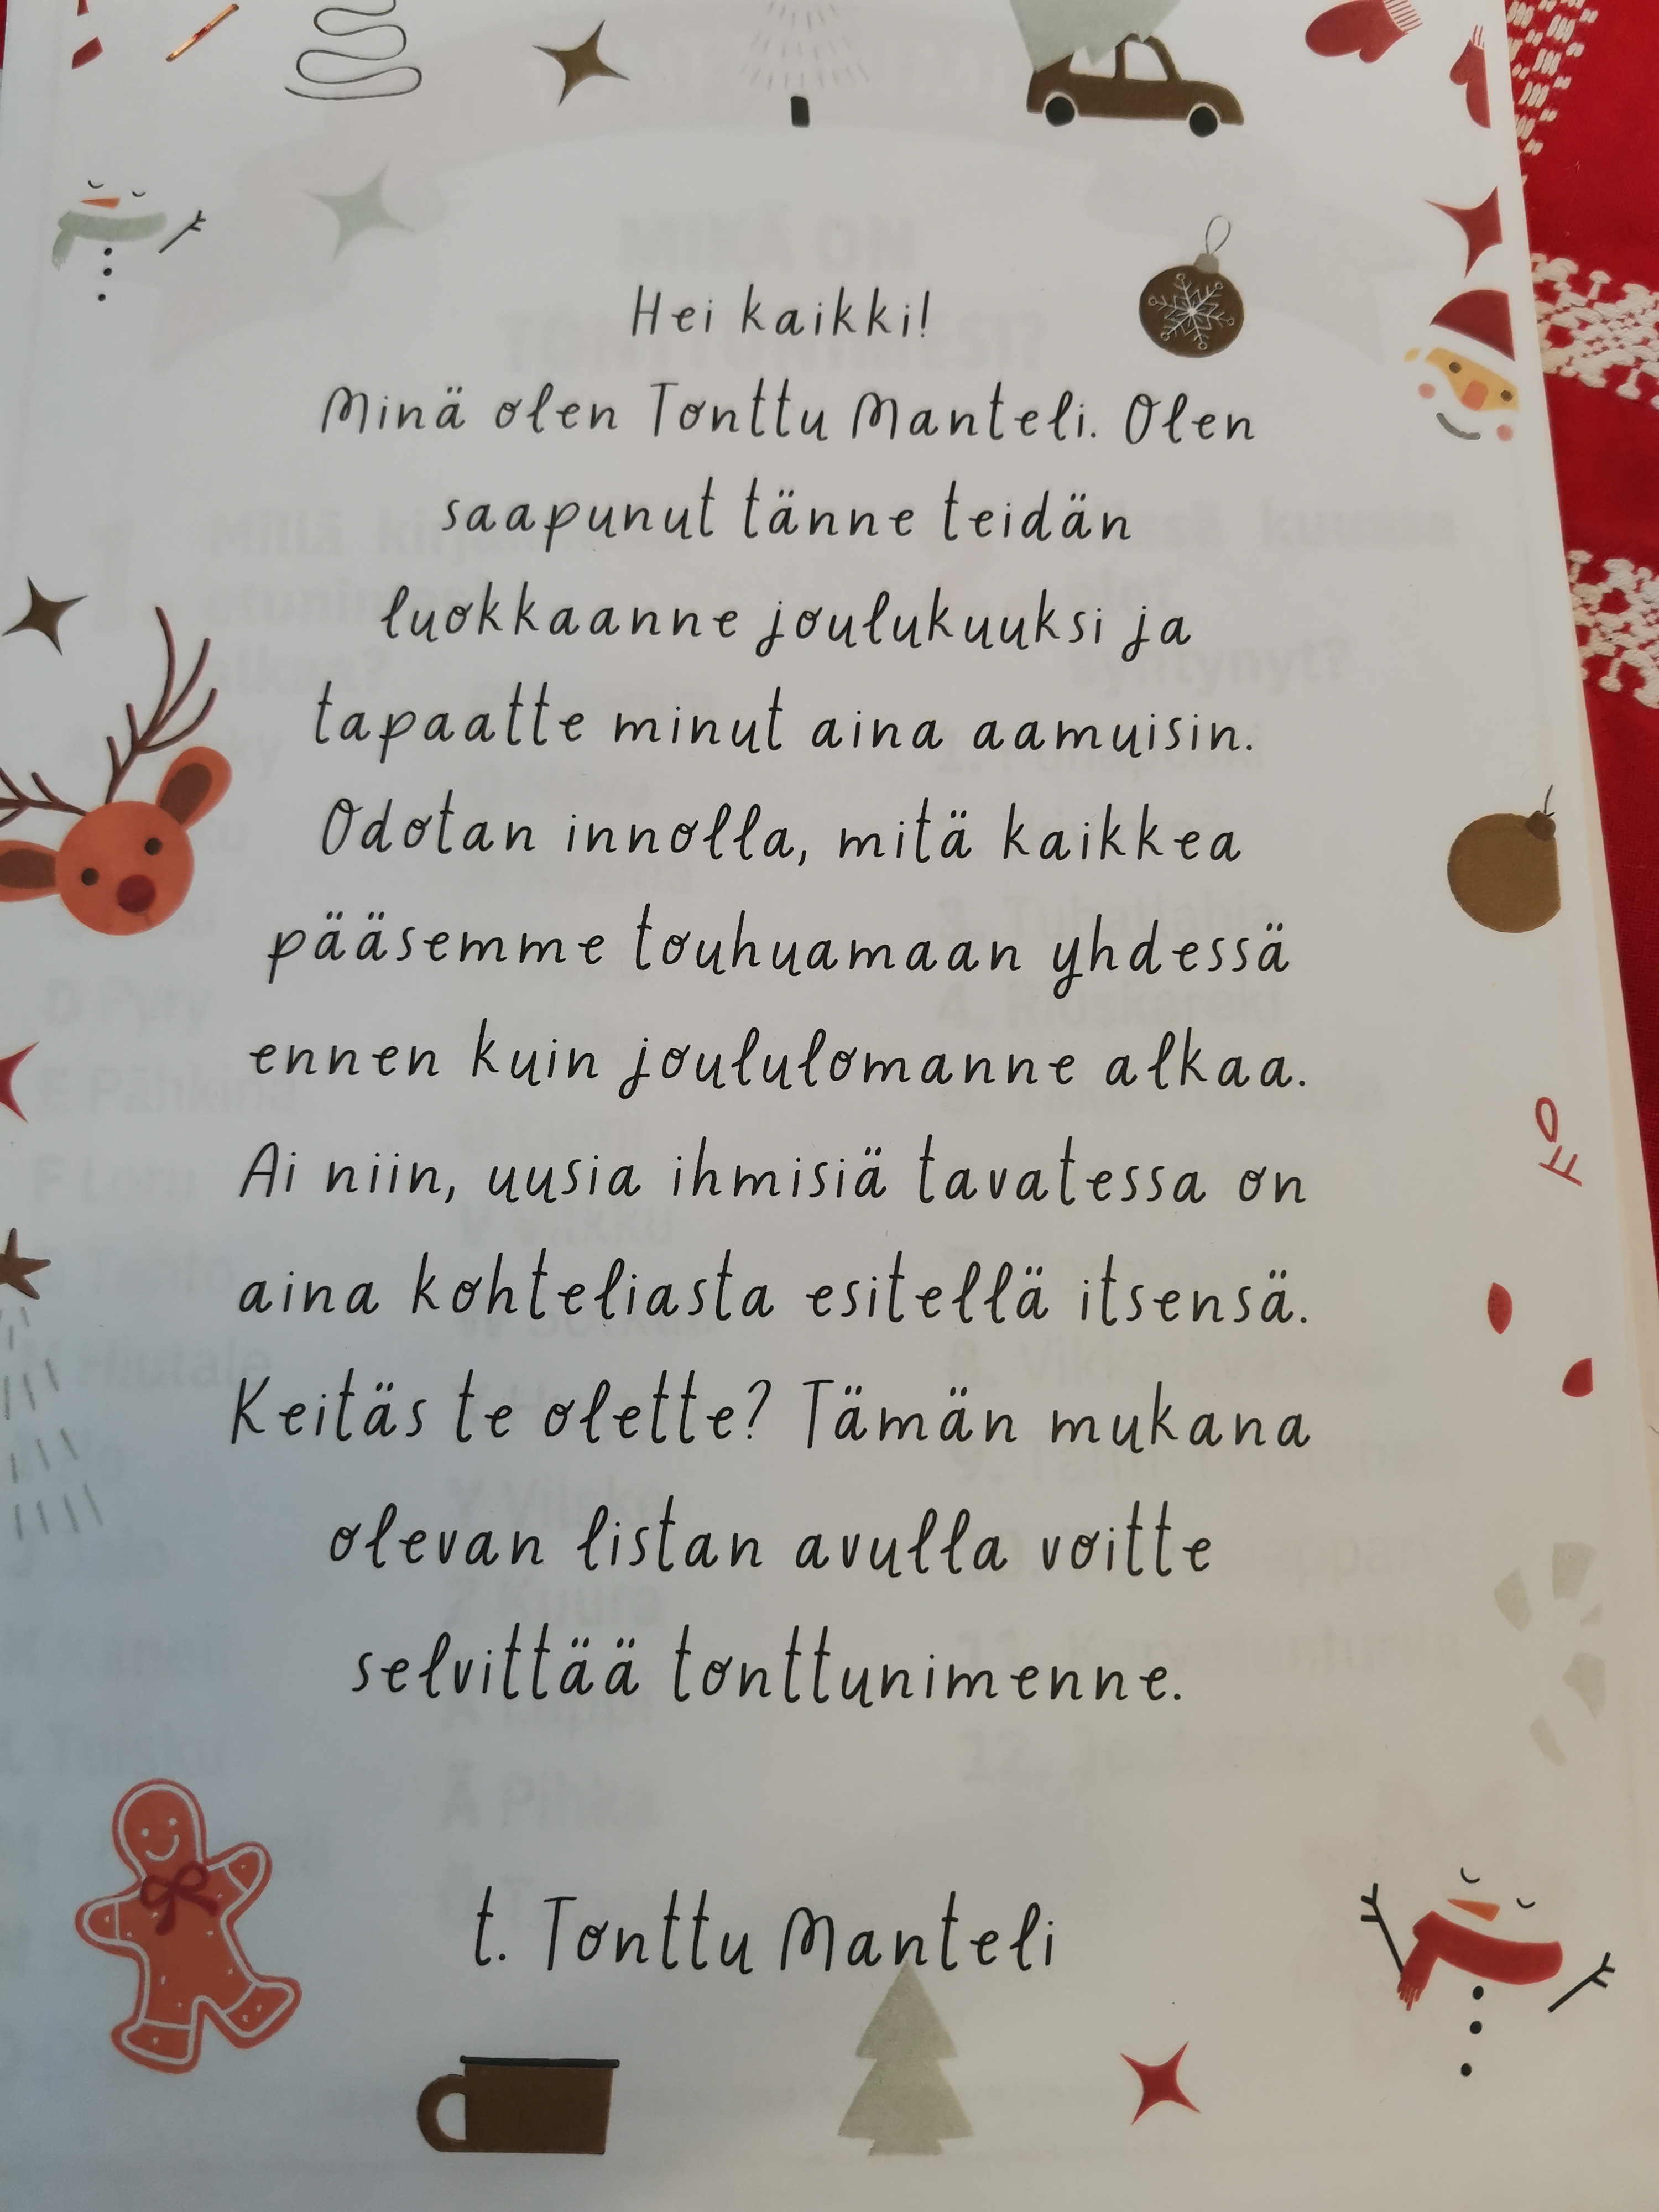 Hei kaikki!
Minä olen Tonttu Manteli. Olen
saapunut tänne teidän
luokkaanne joulukuuksi ja
tapaatte minut aina aamuisin.
Odotan innolla, mitä kaikkea
pääsemme touhuamaan yhdessä
ennen kuin joululomanne alkaa.
Ai niin, uusia ihmisiä tavatessa on
aina kohteliasta esitellä itsensä.
Keitäs te olette? Tämän mukana
olevan listan avulla voitte
selvittää tonttunimenne.
t. Tonttu Manteli